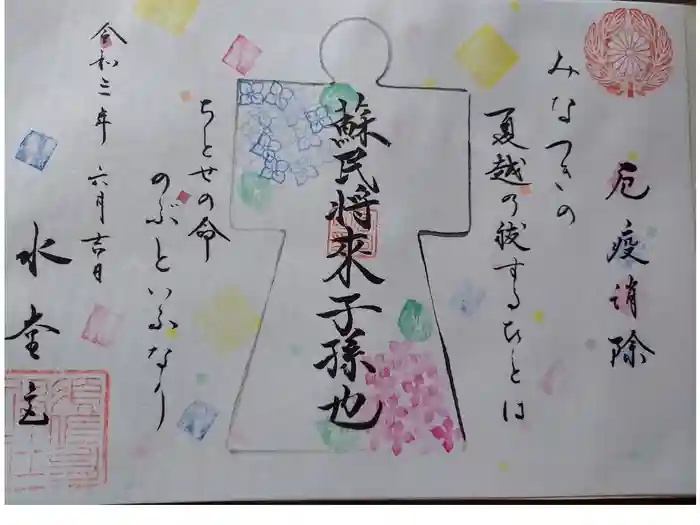 厄疫消除
みなつきの
夏越の祓するひとは
蘇民将来子孫也
ちとせの命
のぶといふなり
令和三年 六月吉日
水堂